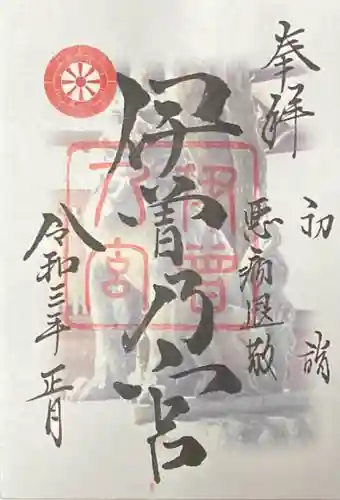 奉拝
初詣
悪病退散
伊曽乃宮
令和三年 正月
伊曽乃宮